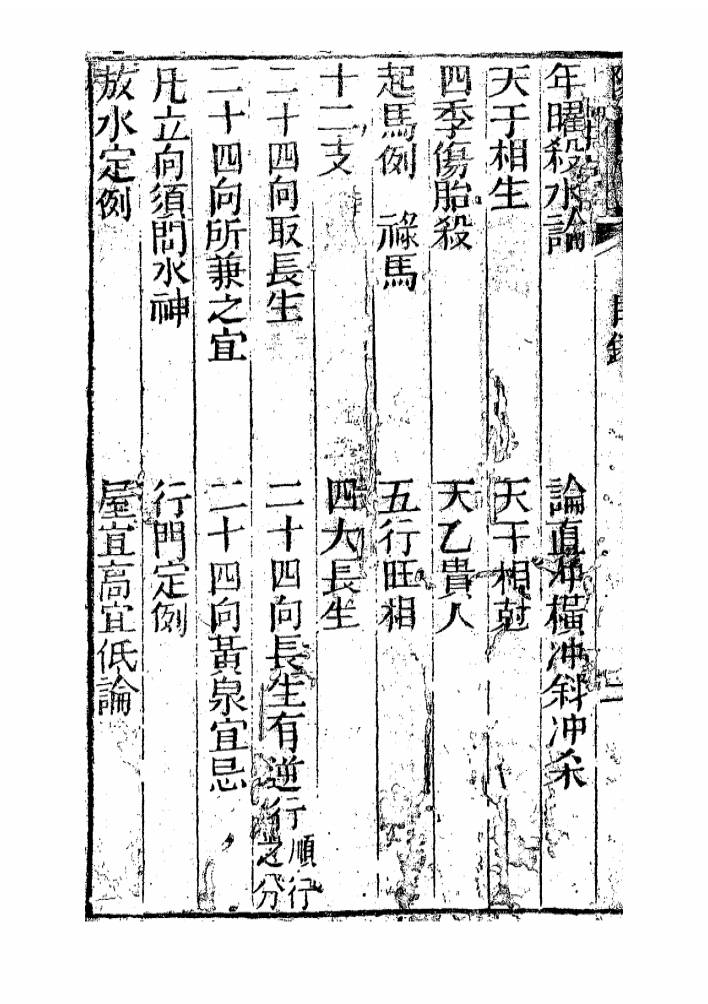 目錄
年曜殺水論
論直冲橫冲斜冲杀
天干相生
天干相尅
四季傷胎殺
天乙貴人
起馬例 祿馬
五行旺相
十二支
四大長生
二十四向取長生
二十四向長生有逆行順行之分
二十四向所兼之宜
二十四向黃泉宜忌
凡立向須問水神
行門定例
放水定例
屋宜高宜低論